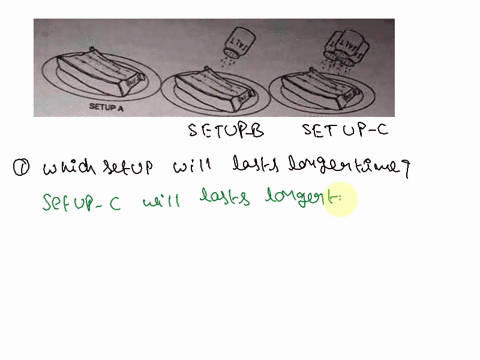 SALT SALT
SETUP A
SETUP-B SETUP-C
① which setup will lasts longer time?
SETUP-C will lasts longert